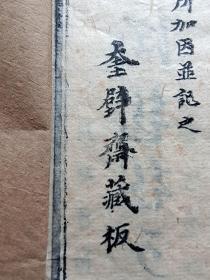 所加因並記之
奎壁齋藏板